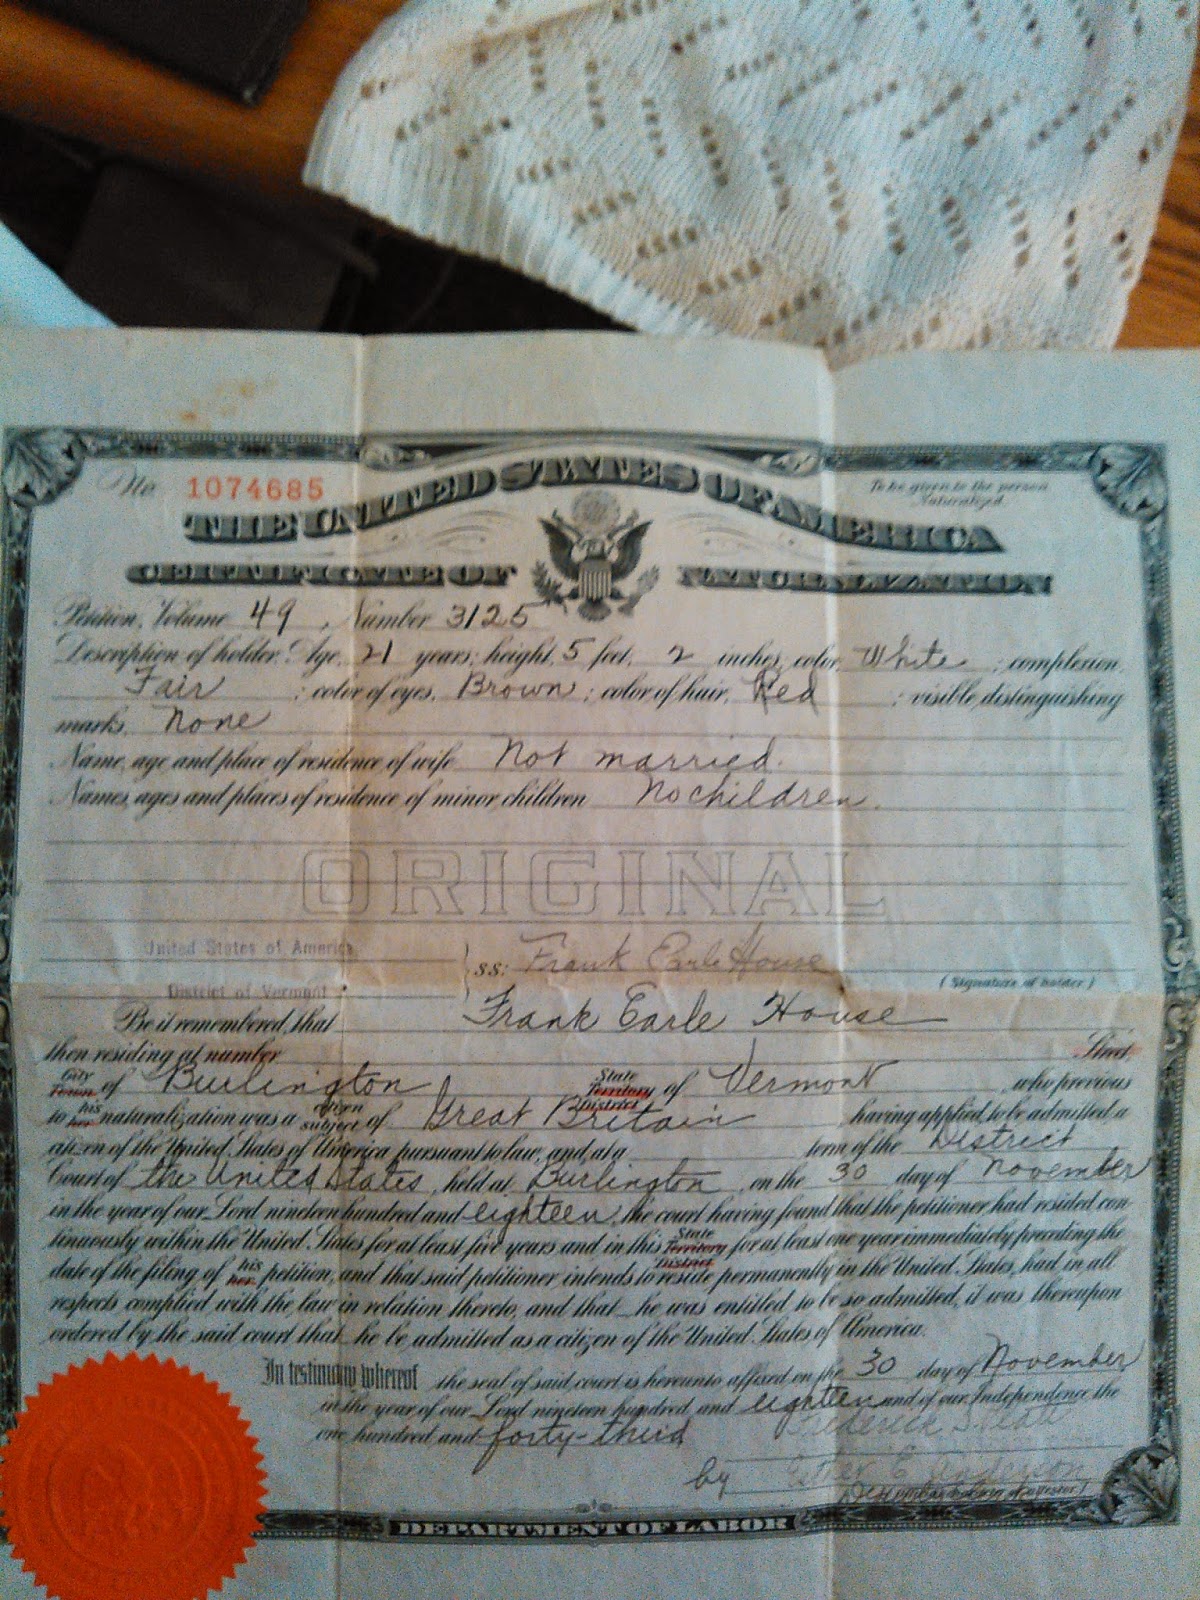 No. 1074685
To be given to the person
Naturalized.
THE UNITED STATES OF AMERICA
CERTIFICATE OF NATURALIZATION
Petition, Volume 49, Number 3125
Description of holder: Age, 21 years; height, 5 feet, 2 inches; color, White; complexion,
Fair; color of eyes, Brown; color of hair, Red; visible distinguishing
marks, None
Name, age and place of residence of wife Not married.
Names, ages and places of residence of minor children No children.
ORIGINAL
United States of America
District of Vermont
ss: Frank Earle House
(Signature of holder)
Be it remembered, that Frank Earle House
then residing at number Street,
City Town of Burlington State Territory District of Vermont, who previous
to his her naturalization was a citizen subject of Great Britain, having applied to be admitted a
citizen of the United States of America pursuant to law, and, at a term of the District
Court of the United States, held at Burlington, on the 30 day of November
in the year of our Lord nineteen hundred and eighteen, the court having found that the petitioner had resided con-
tinuously within the United States for at least five years and in this State Territory District for at least one year immediately preceding the
date of the filing of his her petition, and that said petitioner intends to reside permanently in the United States, had in all
respects complied with the law in relation thereto, and that he was entitled to be so admitted, it was thereupon
ordered by the said court that he be admitted as a citizen of the United States of America.
In testimony whereof the seal of said court is hereunto affixed on the 30 day of November
in the year of our Lord nineteen hundred and eighteen and of our Independence the
one hundred and forty-third
Frederick
by Esther E. Anderson
DEPARTMENT OF LABOR